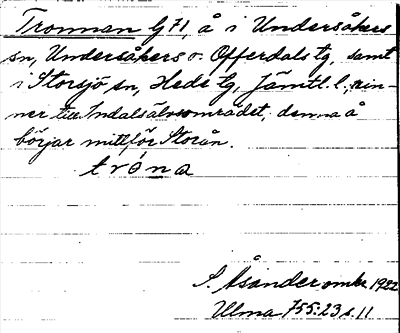 Tronnan G71, å i Undersåkers
sn, Undersåkers o. Offerdals tg, samt
i Storsjö sn, Hede tg, Jämtl. l., rin-
ner till Indalsälvsområdet, denna å
börjar mittför Storån.
tróna
S. Åsander omkr. 1922
Ulma 755:23 s. 11